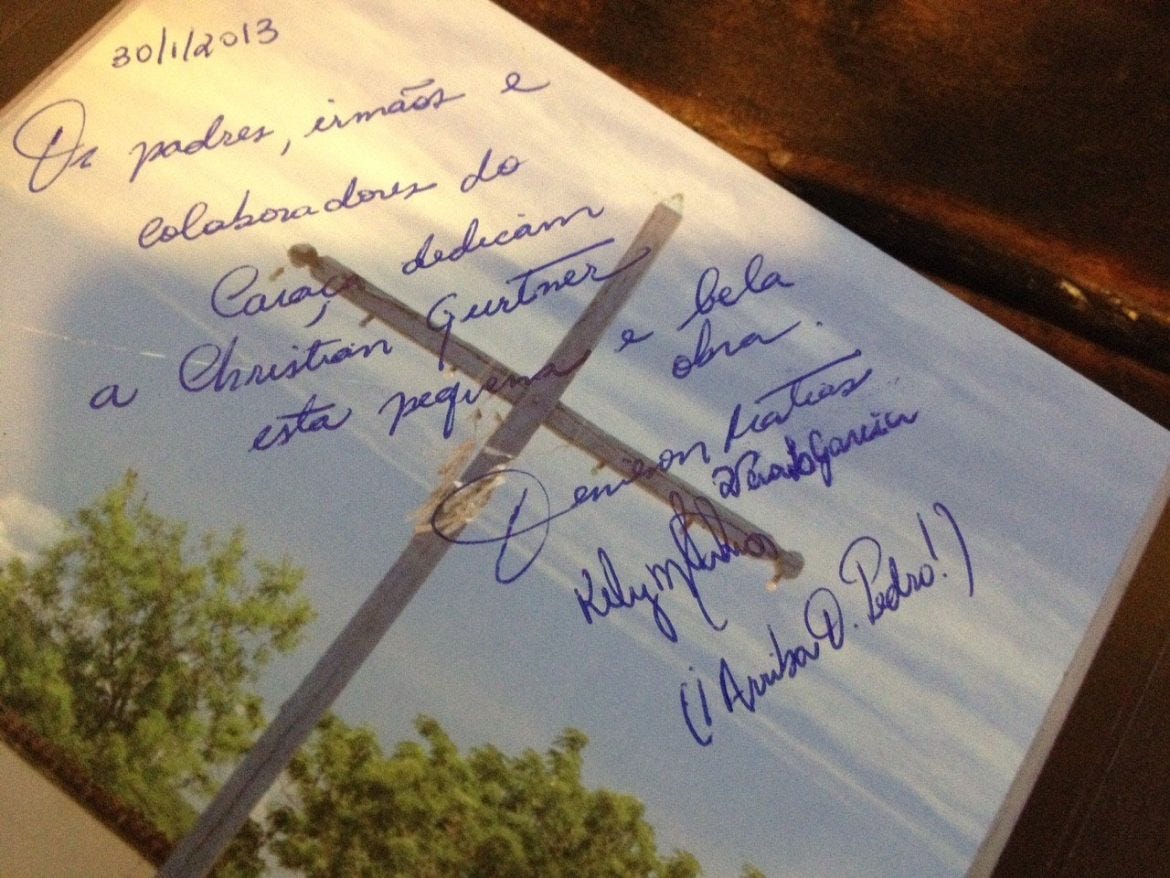 30/1/2013
Os padres, irmãos e
colaboradores do
Caraça dedicam
a Christian Gurtner
esta pequena e bela
obra.
Denilson Matias
Vera Garcia
Kely
(¡Arriba D. Pedro!)